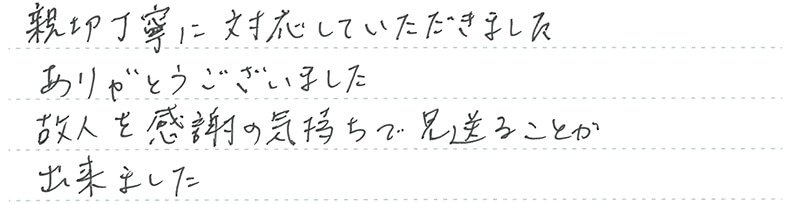 親切丁寧に対応していただきました
ありがとうございました
故人を感謝の気持ちで見送ることが
出来ました